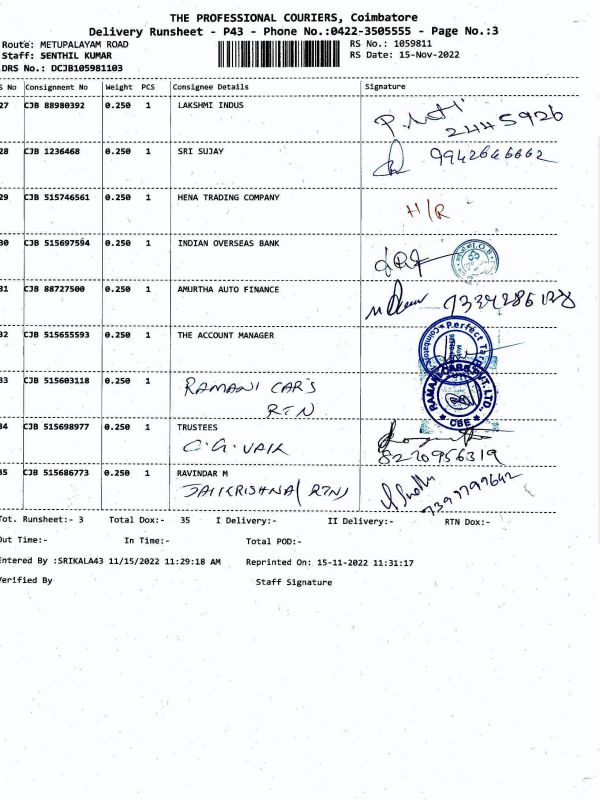 THE PROFESSIONAL COURIERS, Coimbatore
Delivery Runsheet - P43 - Phone No.:0422-3505555 - Page No.:3
Route: METUPALAYAM ROAD RS No.: 1059811
Staff: SENTHIL KUMAR RS Date: 15-Nov-2022
DRS No.: DCJB105981103
S No Consignment No Weight PCS Consignee Details Signature
27 CJB 88980392 0.250 1 LAKSHMI INDUS
2445926
28 CJB 1236468 0.250 1 SRI SUJAY 9942646662
29 CJB 515746561 0.250 1 HENA TRADING COMPANY H/R
30 CJB 515697594 0.250 1 INDIAN OVERSEAS BANK I.O.B
31 CJB 88727500 0.250 1 AMURTHA AUTO FINANCE
32 CJB 515655593 0.250 1 THE ACCOUNT MANAGER Perfect
33 CJB 515603118 0.250 1 RAMANI CAR'S RAMANI CARS PVT. LTD.
RTN * CBE *
34 CJB 515698977 0.250 1 TRUSTEES
C.G. VAIK 8220956319
35 CJB 515686773 0.250 1 RAVINDAR M
JAIKRISHNA RTN
Tot. Runsheet:- 3 Total Dox:- 35 I Delivery:- II Delivery:- RTN Dox:-
Out Time:- In Time:- Total POD:-
Entered By :SRIKALA43 11/15/2022 11:29:18 AM Reprinted On: 15-11-2022 11:31:17
Verified By Staff Signature